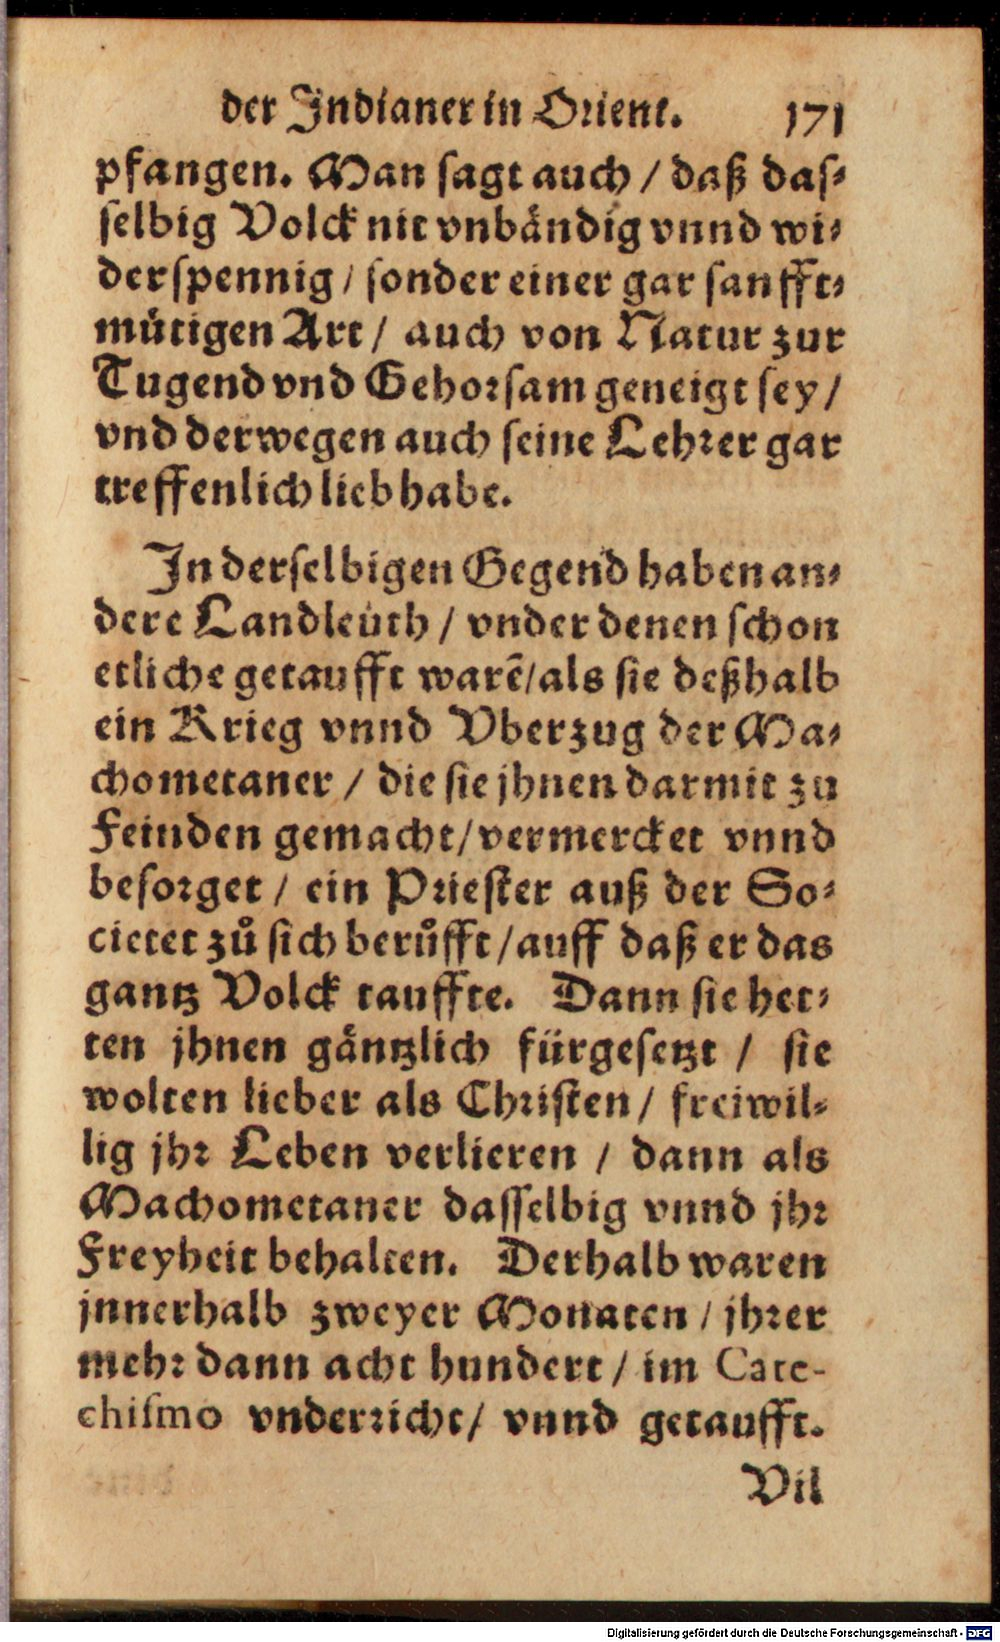 der Indianer in Orient. 171
pfangen. Man sagt auch / daß das⸗
selbig Volck nit vnbändig vnnd wi⸗
derspennig / sonder einer gar sanfft⸗
mütigen Art / auch von Natur zur
Tugend vnd Gehorsam geneigt sey /
vnd derwegen auch seine Lehrer gar
treffenlich lieb habe.
In derselbigen Gegend haben an⸗
dere Landleüth / vnder denen schon
etliche getaufft warẽ / als sie deßhalb
ein Krieg vnnd Vberzug der Ma⸗
chometaner / die sie jhnen darmit zu
Feinden gemacht / vermercket vnnd
besorget / ein Priester auß der So⸗
cietet zů sich berůfft / auff daß er das
gantz Volck tauffte. Dann sie het⸗
ten jhnen gäntzlich fürgesetzt / sie
wolten lieber als Christen / freiwil⸗
lig jhr Leben verlieren / dann als
Machometaner dasselbig vnnd jhr
Freyheit behalten. Derhalb waren
jnnerhalb zweyer Monaten / jhrer
mehr dann acht hundert / im Cate-
chismo vnderricht / vnnd getaufft.
Vil
Digitalisierung gefördert durch die Deutsche Forschungsgemeinschaft - DFG